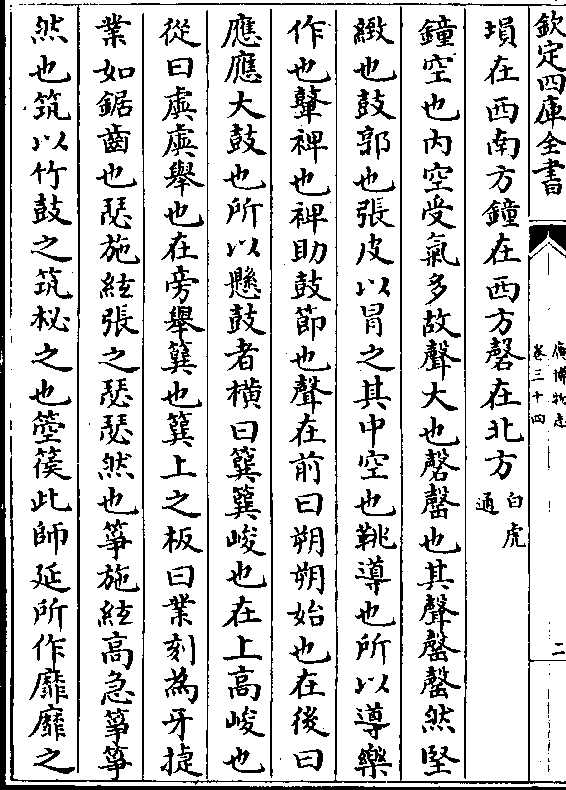 欽定四庫全書
廣博物志
卷三十四
二
塤在西南方鐘在西方磬在北方白虎通
鐘空也内空受氣多故聲大也磬罄也其聲罄罄然堅
緻也鼓郭也張皮以冒之其中空也鞉導也所以導樂
作也鼙裨也裨助鼓節也聲在前曰朔朔始也在後曰
應應大鼓也所以懸鼓者橫曰簨簨峻也在上高峻也
從曰虡虡舉也在旁舉簨也簨上之板曰業刻為牙捷
業如鋸齒也瑟施絃張之瑟瑟然也箏施絃高急箏箏
然也筑以竹鼓之筑柲之也箜篌此師延所作靡靡之